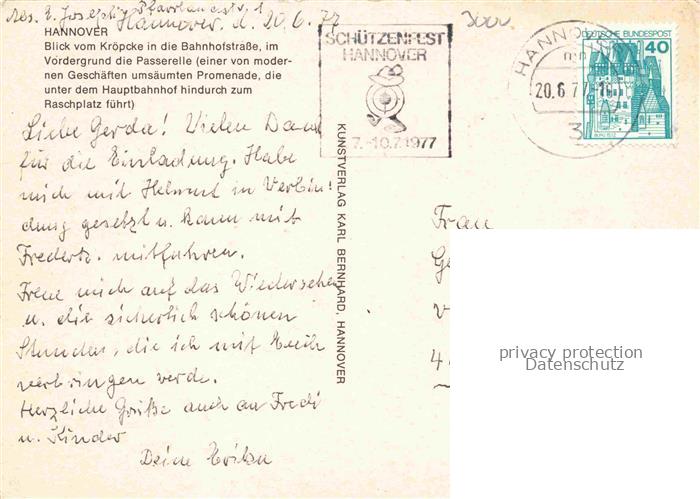 Hannover, d. 20.6.77
HANNOVER
Blick vom Kröpcke in die Bahnhofstraße, im
Vordergrund die Passerelle (einer von moder-
nen Geschäften umsäumten Promenade, die
unter dem Hauptbahnhof hindurch zum
Raschplatz führt)
Liebe Gerda! Vielen Dank
für die Einladung. Habe
mich mit Helmut in Verbin-
dung gesetzt u. kann mit
mitfahren.
Freue mich auf das Wiedersehen
u. die sicherlich schönen
Stunden, die ich mit Euch
verbringen werde.
Herzliche Grüße auch an Fredi
u. Kinder
Deine
KUNSTVERLAG KARL BERNHARD, HANNOVER
3000
SCHÜTZENFEST
HANNOVER
7.-10.7.1977
HANNOVER
20.6.77
3
DEUTSCHE BUNDESPOST
40
BURG ELTZ
Frau
privacy protection
Datenschutz